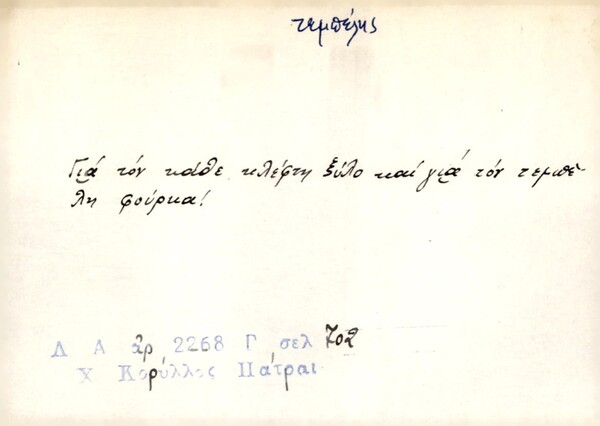 τεμπέλης
Γιά τόν κάθε κλέφτη ξύλο καί γιά τόν τεμπέ-
λη φούρκα!
Λ Α ἀρ 2268 Γ σελ 702
Χ Κορύλλος Πάτραι